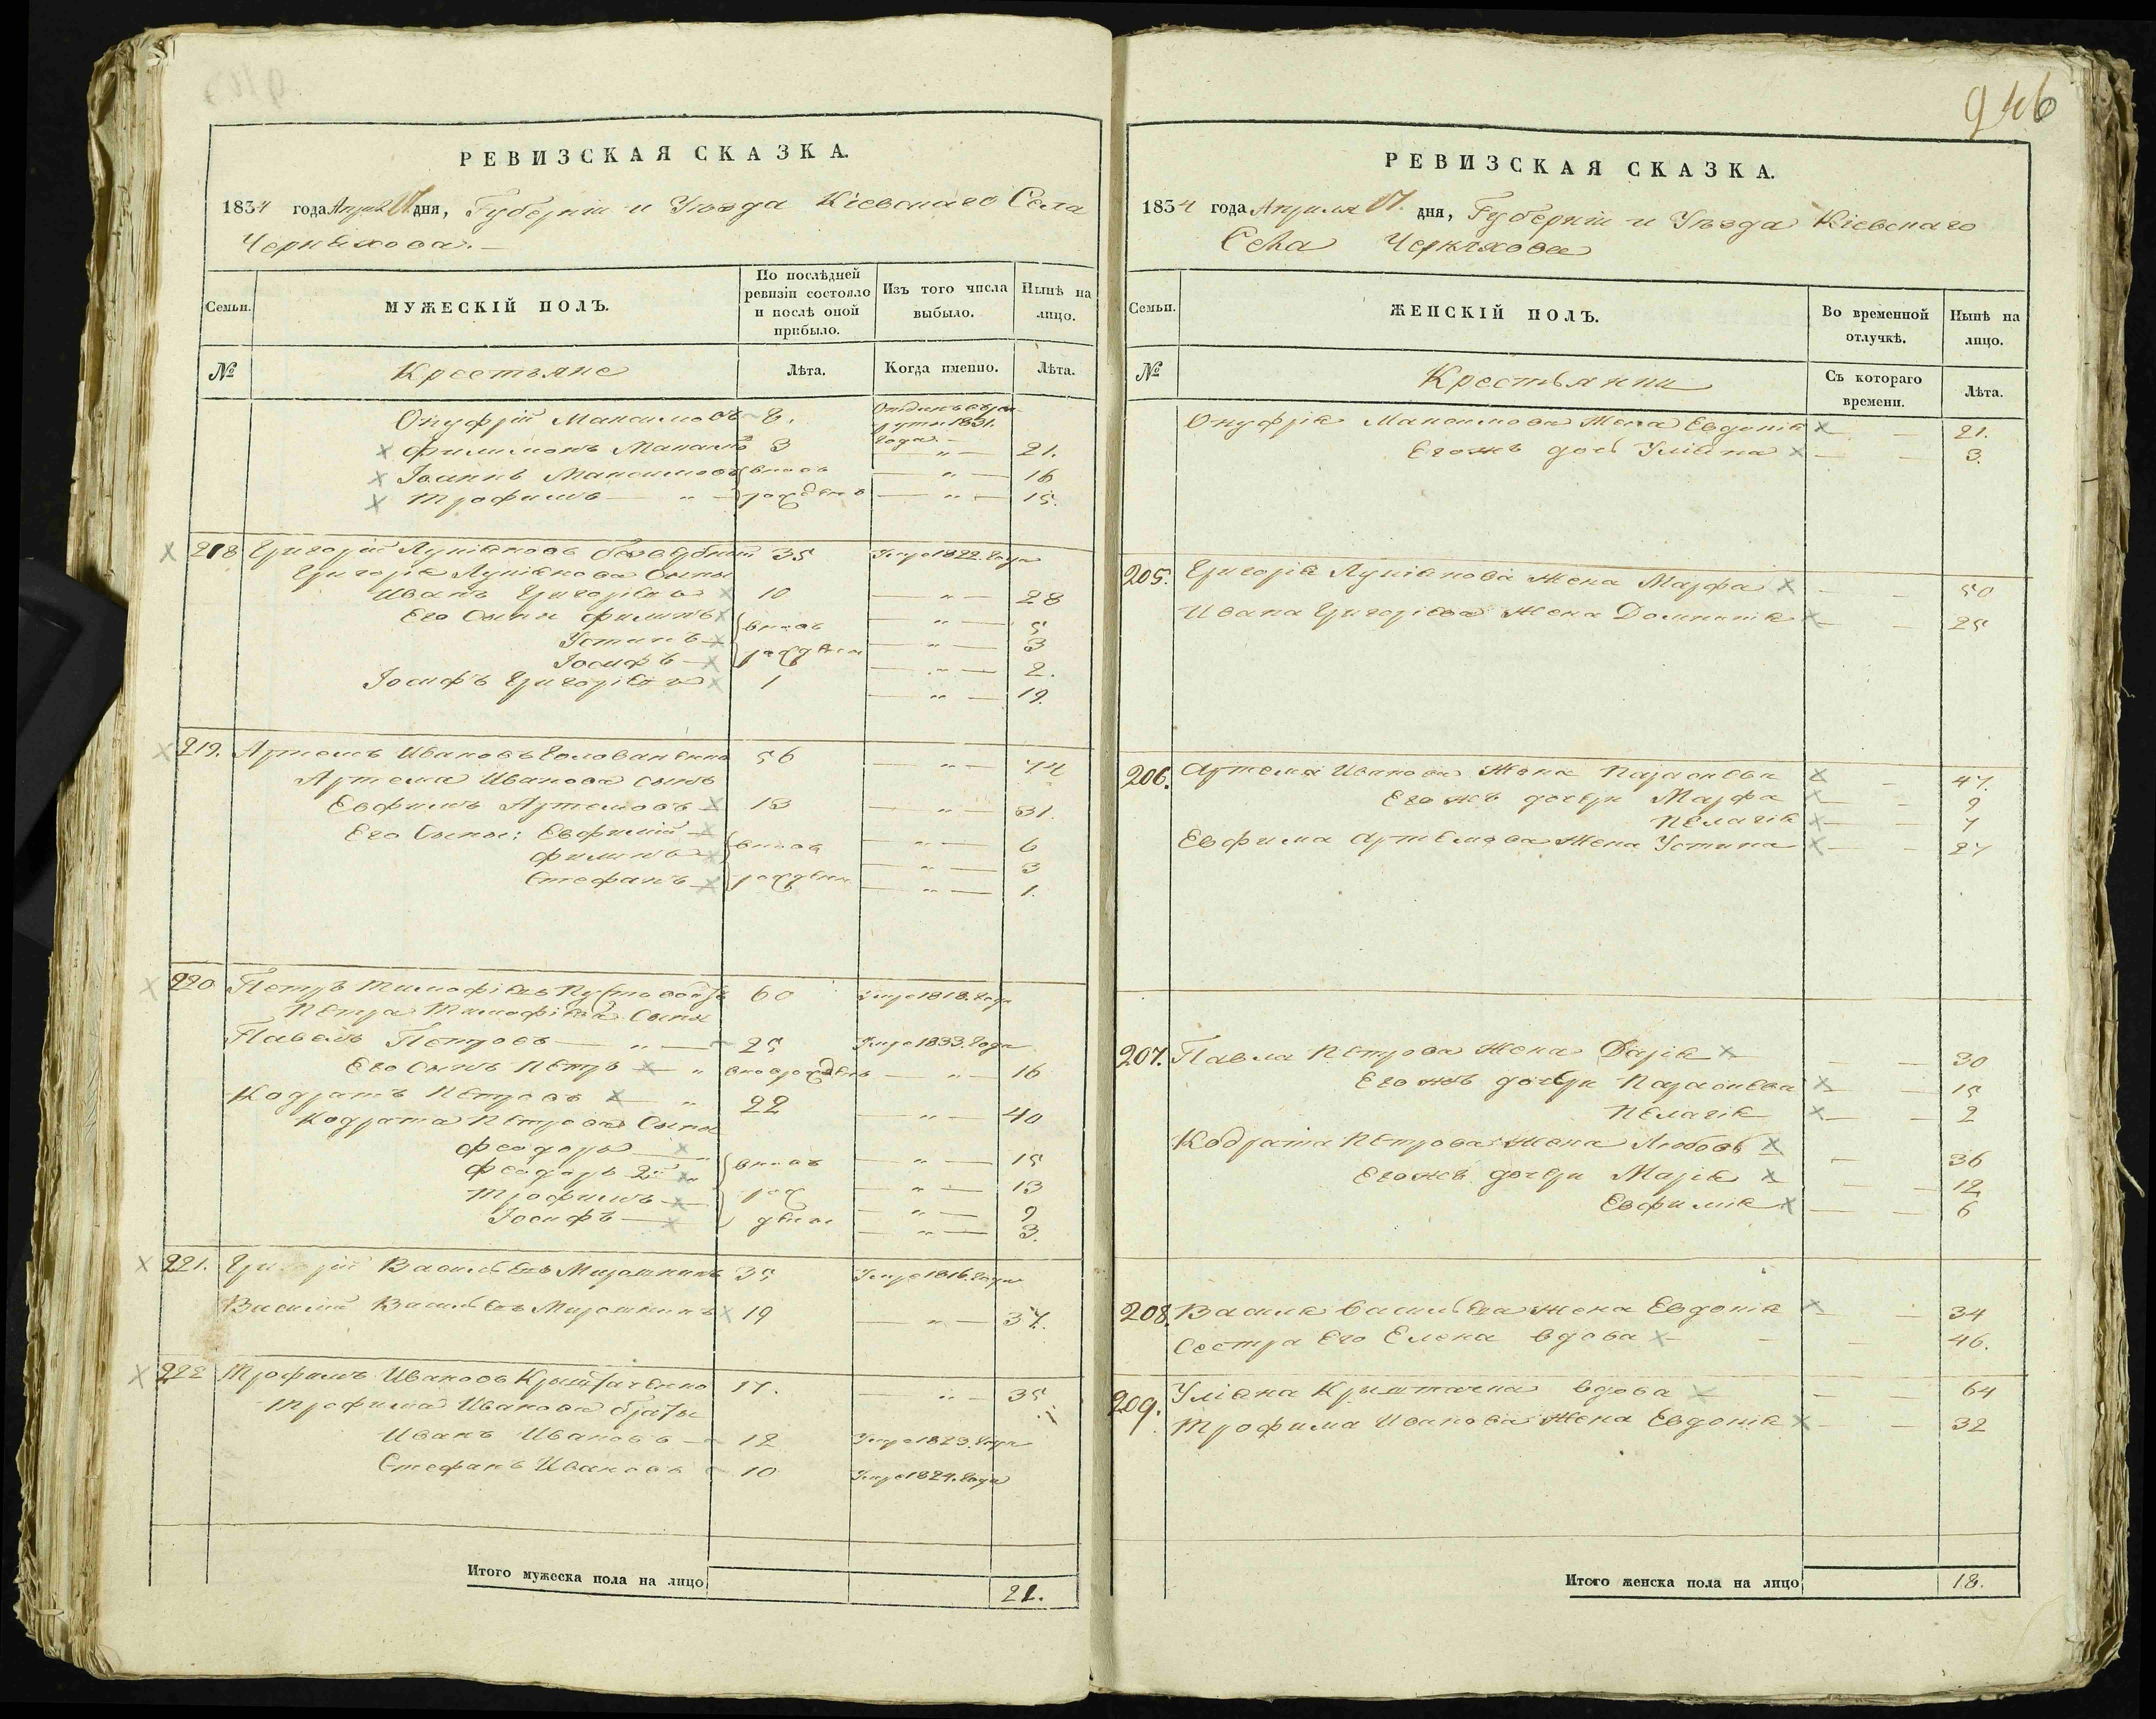 946
РЕВИЗСКАЯ СКАЗКА.
1834 года Апреля 17 дня, Губерніи и Уѣзда Кіевскаго Села
Черняхова.
Семьи.
МУЖЕСКІЙ ПОЛЪ.
По послѣдней ревизіи состояло и послѣ оной прибыло.
Изъ того числа выбыло.
Нынѣ на лицо.
№
Крестьяне
Лѣта.
Когда именно.
Лѣта.
Онуфрій Максимовъ 8. Отданъ въ рекруты 1831. года
Филимонъ Максимовъ 3 — „ — 21.
Іоаннъ Максимовъ вновь — „ — 16
Трофимъ — „ — рожденъ — „ — 15.
218 Григорій Лукіяновъ 35 Умре 1822. года
Григорія Лукіянова Сыны
Иванъ Григоріевъ 10 — „ — 28
Его Сыны Филипъ вновь — „ — 5
Устинъ — „ — 3
Іосифъ рождены — „ — 2.
Іосифъ Григоріевъ 1 — „ — 19.
219. Артемъ Ивановъ Голованенко 56 — „ —
Артема Иванова сынъ
Евфимъ Артемовъ 13 — „ — 31.
Его Сыны: Евфимій вновь — „ — 6
Филипъ — „ — 3
Стефанъ рождены — „ — 1.
220 Петръ Тимофіевъ 60 Умре 1818. года
Петра Тимофіева Сыны
Павелъ Петровъ — „ — 25 Умре 1833. года
Его Сынъ Петръ „ вноврожденъ — „ — 16
Кодратъ Петровъ „ 22 — „ — 40
Кодрата Петрова Сыны
Феодоръ „ вновь — „ — 15
Феодоръ 2й „ — „ — 13
Трофимъ рож — „ — 9
Іосифъ дены — „ — 3.
221. Григорій Васильевъ Мирошникъ 35 Умре 1816. года
Василій Васильевъ Мирошникъ 19 — „ — 37.
222 Трофимъ Ивановъ 17. — „ — 35.
Трофима Иванова братья
Иванъ Ивановъ 12 Умре 1823. года
Стефанъ Ивановъ 10 Умре 1824. года
Итого мужеска пола на лицо 21.
РЕВИЗСКАЯ СКАЗКА.
1834 года Апреля 17. дня, Губерніи и Уѣзда Кіевскаго
Села Черняхова
Семьи.
ЖЕНСКІЙ ПОЛЪ.
Во временной отлучкѣ.
Нынѣ на лицо.
№
Крестьянки
Съ котораго времени.
Лѣта.
Онуфрія Максимова Жена Евдокія — — 21.
Егожъ дочь Уліяна — — 3.
205. Григорія Лукіянова жена Марфа — — 50
Ивана Григоріева жена Домникія — — 25
206. Артема Иванова Жена Параскева — 47.
Егожъ дочери Марфа — — 9
Пелагія — — 7
Евфима Артемова Жена Устина — — 27
207. Павла Петрова Жена Дарія — — 30
Егожъ дочери Параскева — — 15
Пелагія — — 2
Кодрата Петрова жена Любовь — 36
Егожъ дочери Марія — — 12
Евфимія — — 6
208. Василя Васильева жена Евдокія — — 34
Сестра Его Елена вдова — — — 46.
209. Уліяна вдова — 64
Трофима Иванова Жена Евдокія — — 32
Итого женска пола на лицо 18.